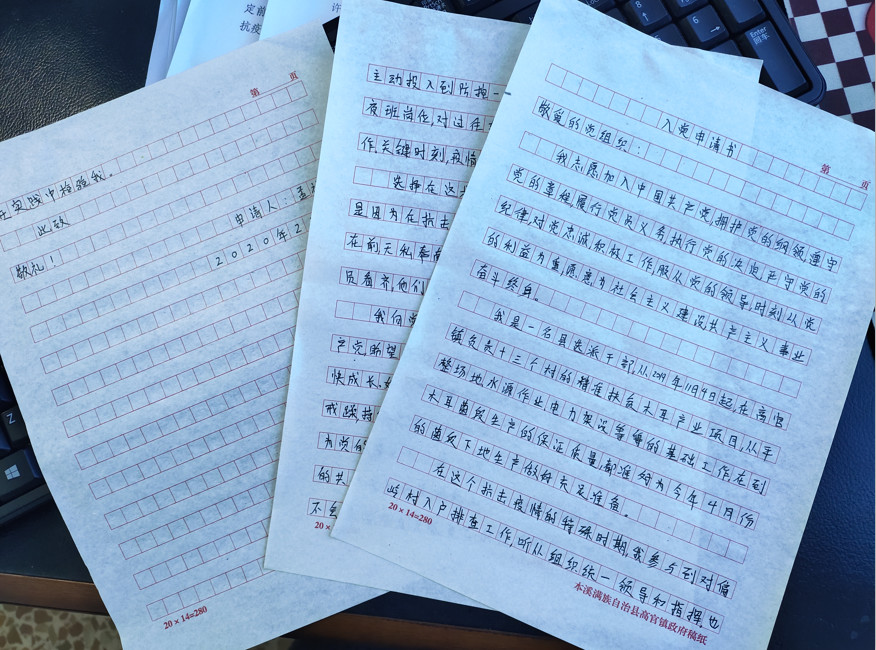 入党申请书
第 页
敬爱的党组织：
我志愿加入中国共产党,拥护党的纲领,遵守
党的章程,履行党员义务,执行党的决定,严守党的
纪律,对党忠诚,积极工作,服从党的领导,时刻从党
的利益为重,愿意为社会主义建设,共产主义事业
奋斗终身。
我是一名县选派干部,从2019年11月4日起,在高官
镇负责十三个村的精准扶贫木耳产业项目,从平
整场地水源作业,电力架设等等的基础工作,在到
木耳菌段生产的保证质量,都准时为今年4月份
的菌段下地生产做好充足准备。
在这个抗击疫情的特殊时期,我参与到对
岭村入户排查工作,听从组织统一领导和指挥,也
20×14=280
本溪满族自治县高官镇政府稿纸
主动投入到防控一
夜班岗位,对过往
作,关键时刻,疫情
选择在这
是因为在抗击
在前无私奉
员看齐,他们
我向党
产党
快成长
戒骄,持
为党的
的共
不
20×
第 页
实践中检验我。
此致
敬礼！
申请人：孟
2020年2
20×14=280
定前
抗疫
许
Enter
回车
8
6
Z